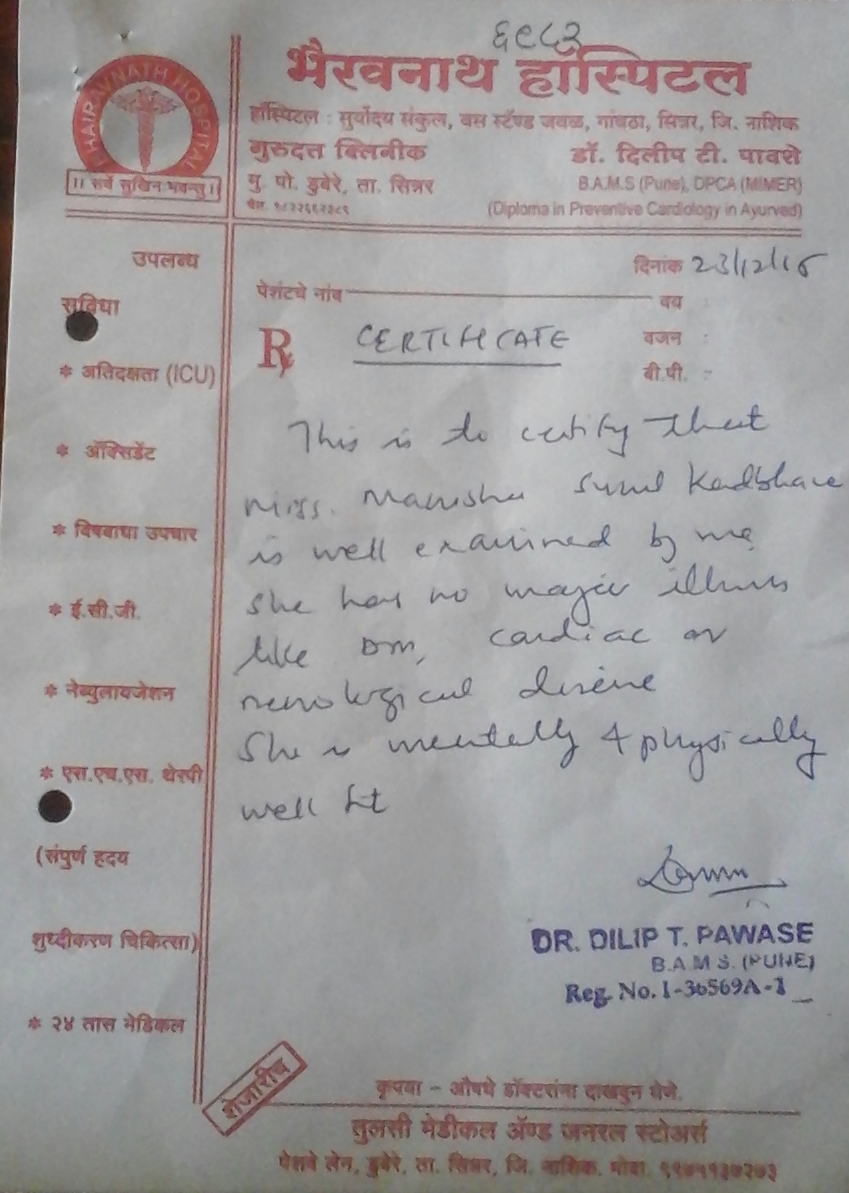 ६९८३
भैरवनाथ हॉस्पिटल
BHAIRAVNATH HOSPITAL
।। सर्वे सुखिन भवन्तु।।
हॉस्पिटल : सुर्योदय संकुल, बस स्टॅण्ड जवळ, गांवठा, सिन्नर, जि. नाशिक
गुरुदत्त क्लिनीक
मु. पो. डुबेरे, ता. सिन्नर
डॉ. दिलीप टी. पावशे
B.A.M.S (Pune), DPCA (MIMER)
(Diploma in Preventive Cardiology in Ayurved)
दिनांक 23/12/16
पेशंटचे नांव
वय :
वजन :
बी.पी. :-
उपलब्ध
सुविधा
* अतिदक्षता (ICU)
* ॲक्सिडेंट
* विषबाधा उपचार
* ई.सी.जी.
* नेब्युलायजेशन
* एस.एच.एस. थेरपी
(संपुर्ण हृदय
शुध्दीकरण चिकित्सा)
* २४ तास मेडिकल
Rx CERTIFICATE
This is to certify that
Miss. Manisha Sunil Kadbhane
is well examined by me
She has no major illness
like DM, cardiac or
neurological disease
She is mentally & physically
well fit
DR. DILIP T. PAWASE
B.A.M.S. (PUNE)
Reg. No. I-36569A-1
शेजारीच
कृपया - औषधे डॉक्टरांना दाखवुन घेणे.
तुलसी मेडीकल ॲण्ड जनरल स्टोअर्स
पेशवे लेन, डुबेरे, ता. सिन्नर, जि. नाशिक. मोबा.